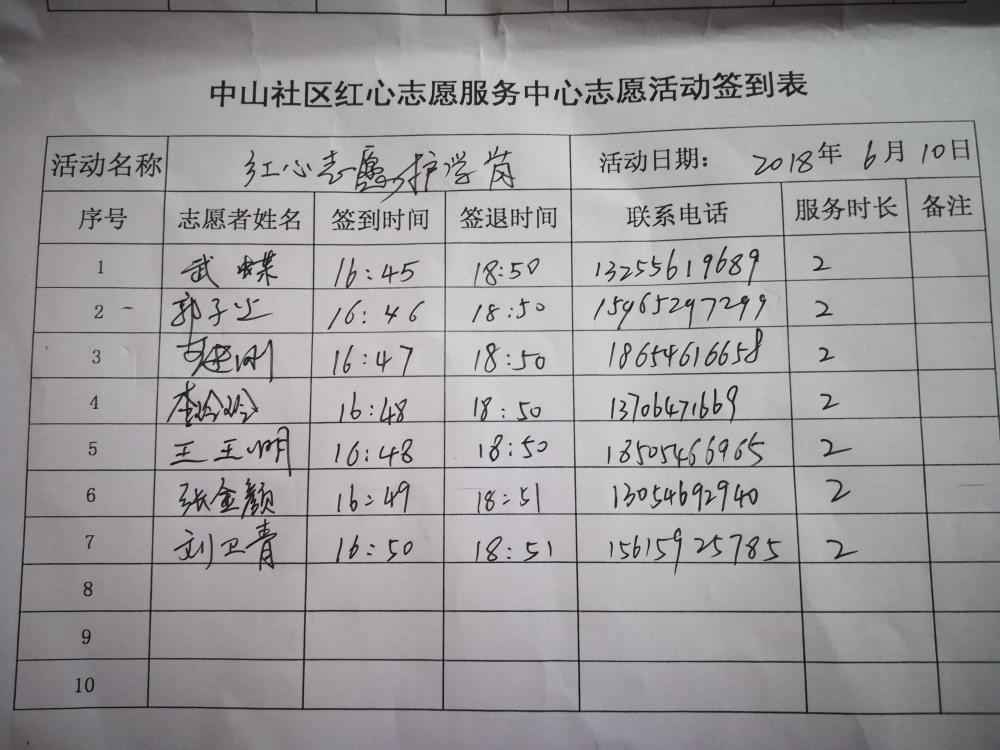 中山社区红心志愿服务中心志愿活动签到表
活动名称 红心志愿护学岗 活动日期: 2018年 6月 10日
序号 志愿者姓名 签到时间 签退时间 联系电话 服务时长 备注
1 武蝶 16:45 18:50 13255619689 2
2 郭子立 16:46 18:50 15965297299 2
3 16:47 18:50 18654616658 2
4 李玲玲 16:48 18:50 13706471669 2
5 王王明 16:48 18:50 18505466965 2
6 张金颜 16:49 18:51 13054692940 2
7 刘卫青 16:50 18:51 15615925785 2
8
9
10